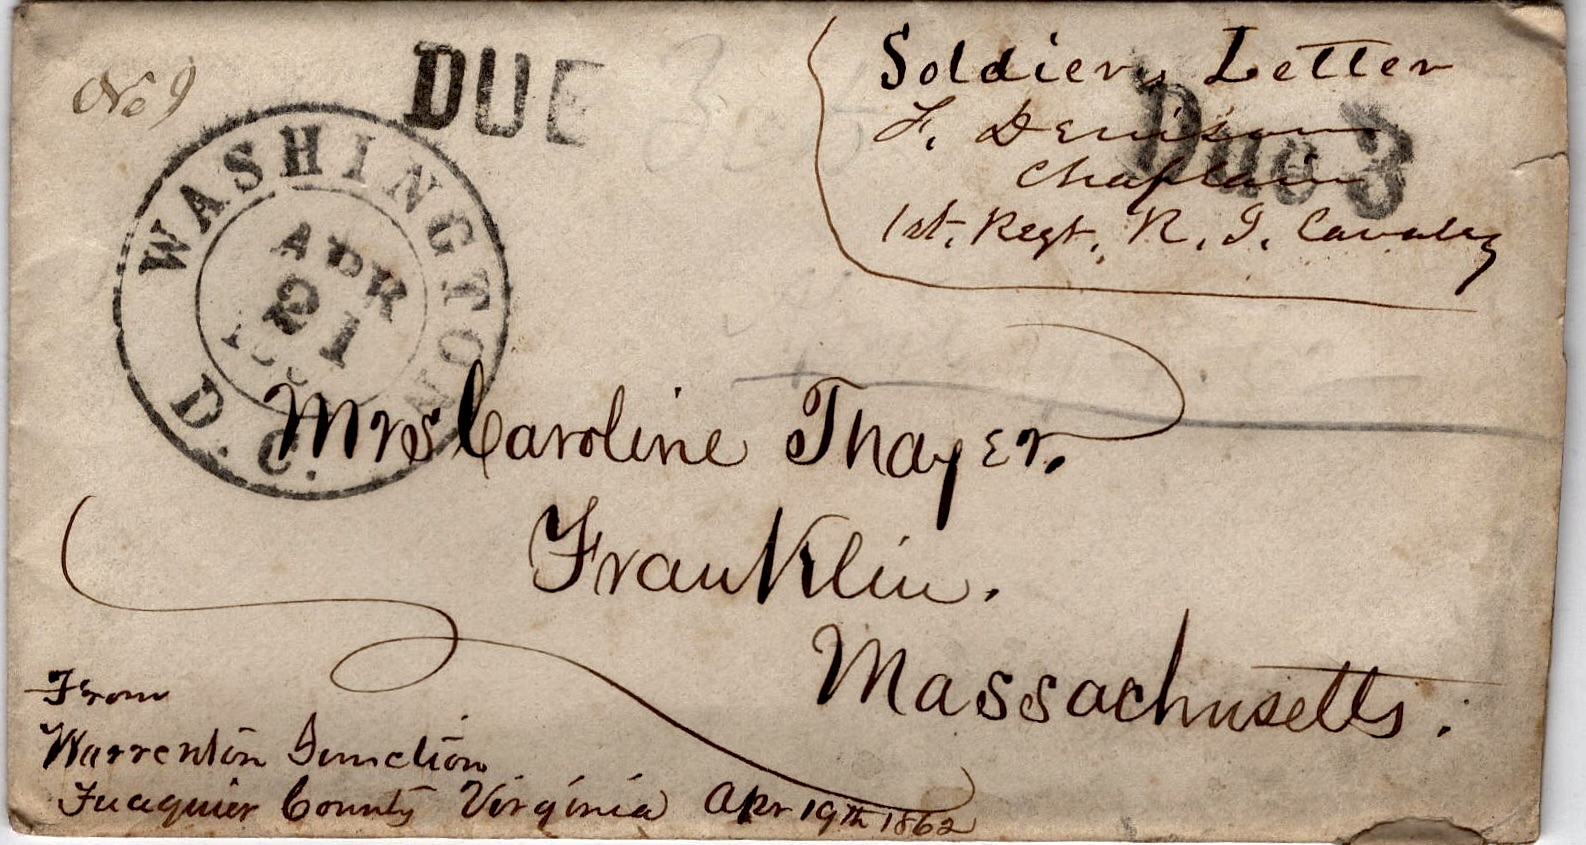 No 9
DUE
Soldier, Letter
F. Denison
Chaplain
Due 3
1st. Regt. R. I. Cavalry
WASHINGTON
APR
21
D. C.
Mrs Caroline Thayer.
Franklin.
Massachusetts.
From
Warrenton Junction
Fuaquier County Virginia Apr 19th 1862